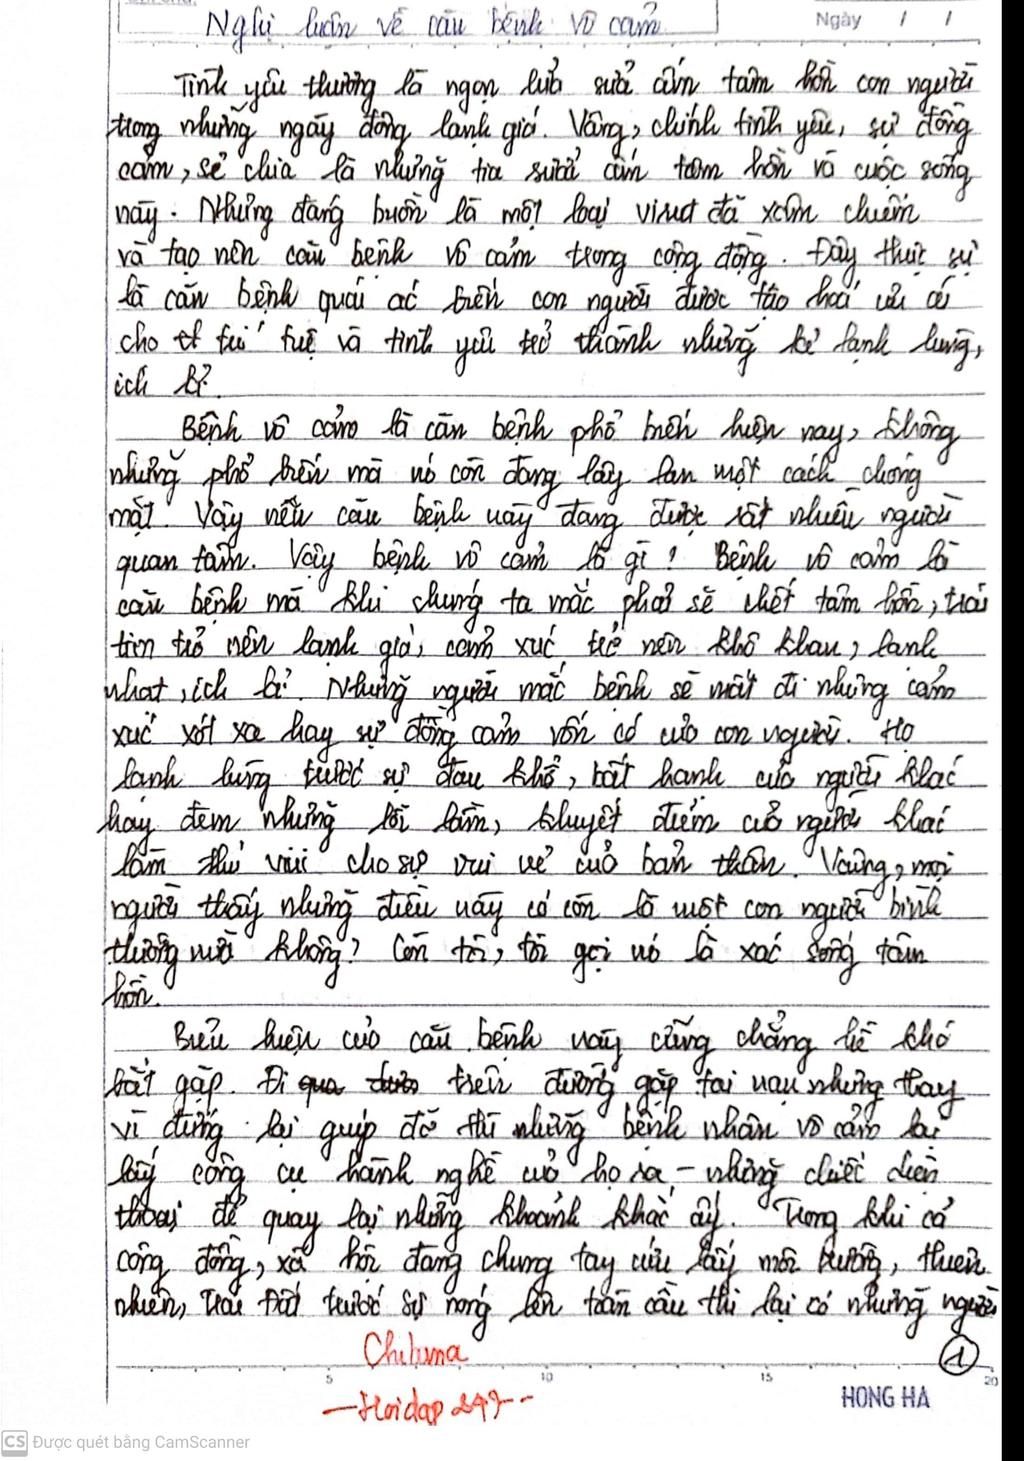 Nghị luận về căn bệnh vô cảm
Ngày / /
Tình yêu thương là ngọn lửa sưởi ấm tâm hồn con người
trong những ngày đông lạnh giá. Vâng, chính tình yêu, sự đồng
cảm, sẻ chia là những tia sưởi ấm tâm hồn và cuộc sống
này. Nhưng đáng buồn là một loại virut đã xâm chiếm
và tạo nên căn bệnh vô cảm trong cộng đồng. Đây thực sự
là căn bệnh quái ác biến con người được tạo hoá ưu ái
cho trí tuệ và tình yêu trở thành những kẻ lạnh lùng,
ích kỉ.
Bệnh vô cảm là căn bệnh phổ biến hiện nay, không
những phổ biến mà nó còn đang lây lan một cách chóng
mặt. Vậy nên căn bệnh này đang được rất nhiều người
quan tâm. Vậy bệnh vô cảm là gì? Bệnh vô cảm là
căn bệnh mà khi chúng ta mắc phải sẽ chết tâm hồn, trái
tim trở nên lạnh giá, cảm xúc trở nên khô khan, lạnh
nhạt, ích kỉ. Những người mắc bệnh sẽ mất đi những cảm
xúc xót xa hay sự đồng cảm vốn có của con người. Họ
lạnh lùng trước sự đau khổ, bất hạnh của người khác
hay đem những lỗi lầm, khuyết điểm của người khác
làm thú vui cho sự vui vẻ của bản thân. Vâng, mọi
người thấy những điều này có còn là một con người bình
thường nữa không? Còn tôi, tôi gọi nó là xác sống tâm
hồn.
Biểu hiện của căn bệnh này cũng chẳng hề khó
bắt gặp. Đi trên đường gặp tai nạn nhưng thay
vì dừng lại giúp đỡ thì những bệnh nhân vô cảm lại
lấy công cụ hành nghề của họ ra - những chiếc điện
thoại để quay lại những khoảnh khắc ấy. Trong khi cả
cộng đồng, xã hội đang chung tay cứu lấy môi trường, thiên
nhiên, Trái Đất trước sự nóng lên toàn cầu thì lại có những người
Chiluma
1
5 10 15 20
-Hoidap 247-
HONG HA
CS Được quét bằng CamScanner